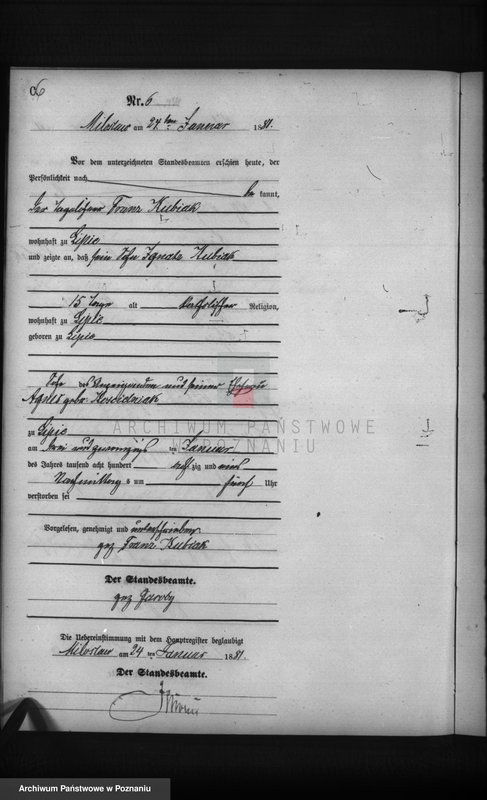 6
Nr. 6
Miloslaw am 24ten Januar 1881.
Vor dem unterzeichneten Standesbeamten erschien heute, der
Persönlichkeit nach
be kannt,
der Tagelöhner Franz Kubiak
wohnhaft zu Lipie
und zeigte an, daß sein Sohn Ignatz Kubiak
15 Tage alt katholischer Religion,
wohnhaft zu Lipie
geboren zu Lipie
Sohn des Anzeigenden und seiner Ehefrau
Agnes geb. Koscielniak
zu Lipie
am drei und zwanzigsten Januar
des Jahres tausend acht hundert acht zig und eins
Nachmittags um fünf Uhr
verstorben sei
Vorgelesen, genehmigt und unterschrieben
gez Franz Kubiak
Der Standesbeamte.
gez
Die Uebereinstimmung mit dem Hauptregister beglaubigt
Miloslaw am 24 ten Januar 1881.
Der Standesbeamte.
ARCHIWUM PAŃSTWOWE
W POZNANIU
Archiwum Państwowe w Poznaniu